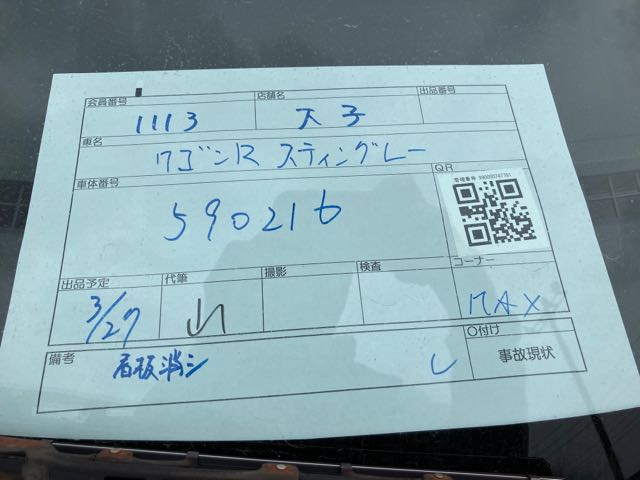 会員番号 店舗名 出品番号
1113 大子
車名
ワゴンR スティングレー
車体番号 QR
管理番号 990000747781
590216
出品予定 代筆 撮影 検査 コーナー
3/27 山 MAX
備考 看板消シ レ 〇付け
事故現状